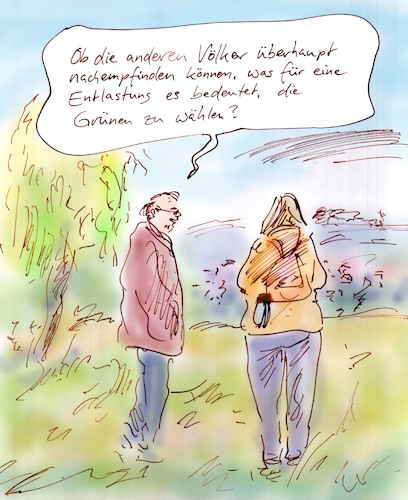 Ob die anderen Völker überhaupt
nachempfinden können, was für eine
Entlastung es bedeutet, die
Grünen zu wählen?